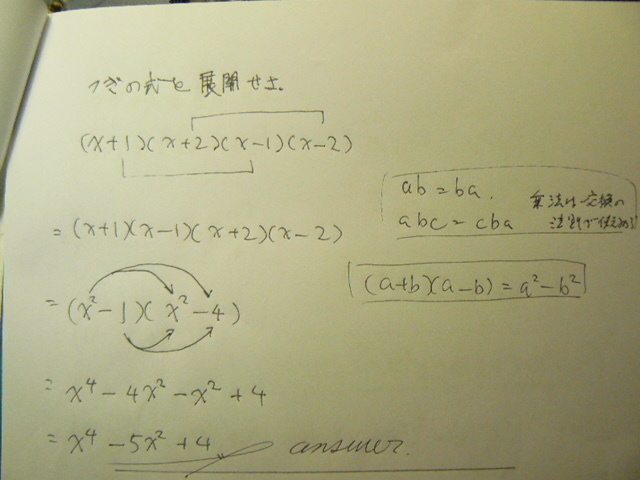 つぎの式を展開せよ。
(x+1)(x+2)(x-1)(x-2)
ab=ba.
abc=cba
乗法は交換の
法則が使える
=(x+1)(x-1)(x+2)(x-2)
(a+b)(a-b)=a²-b²
=(x²-1)(x²-4)
=x⁴-4x²-x²+4
=x⁴-5x²+4 answer.